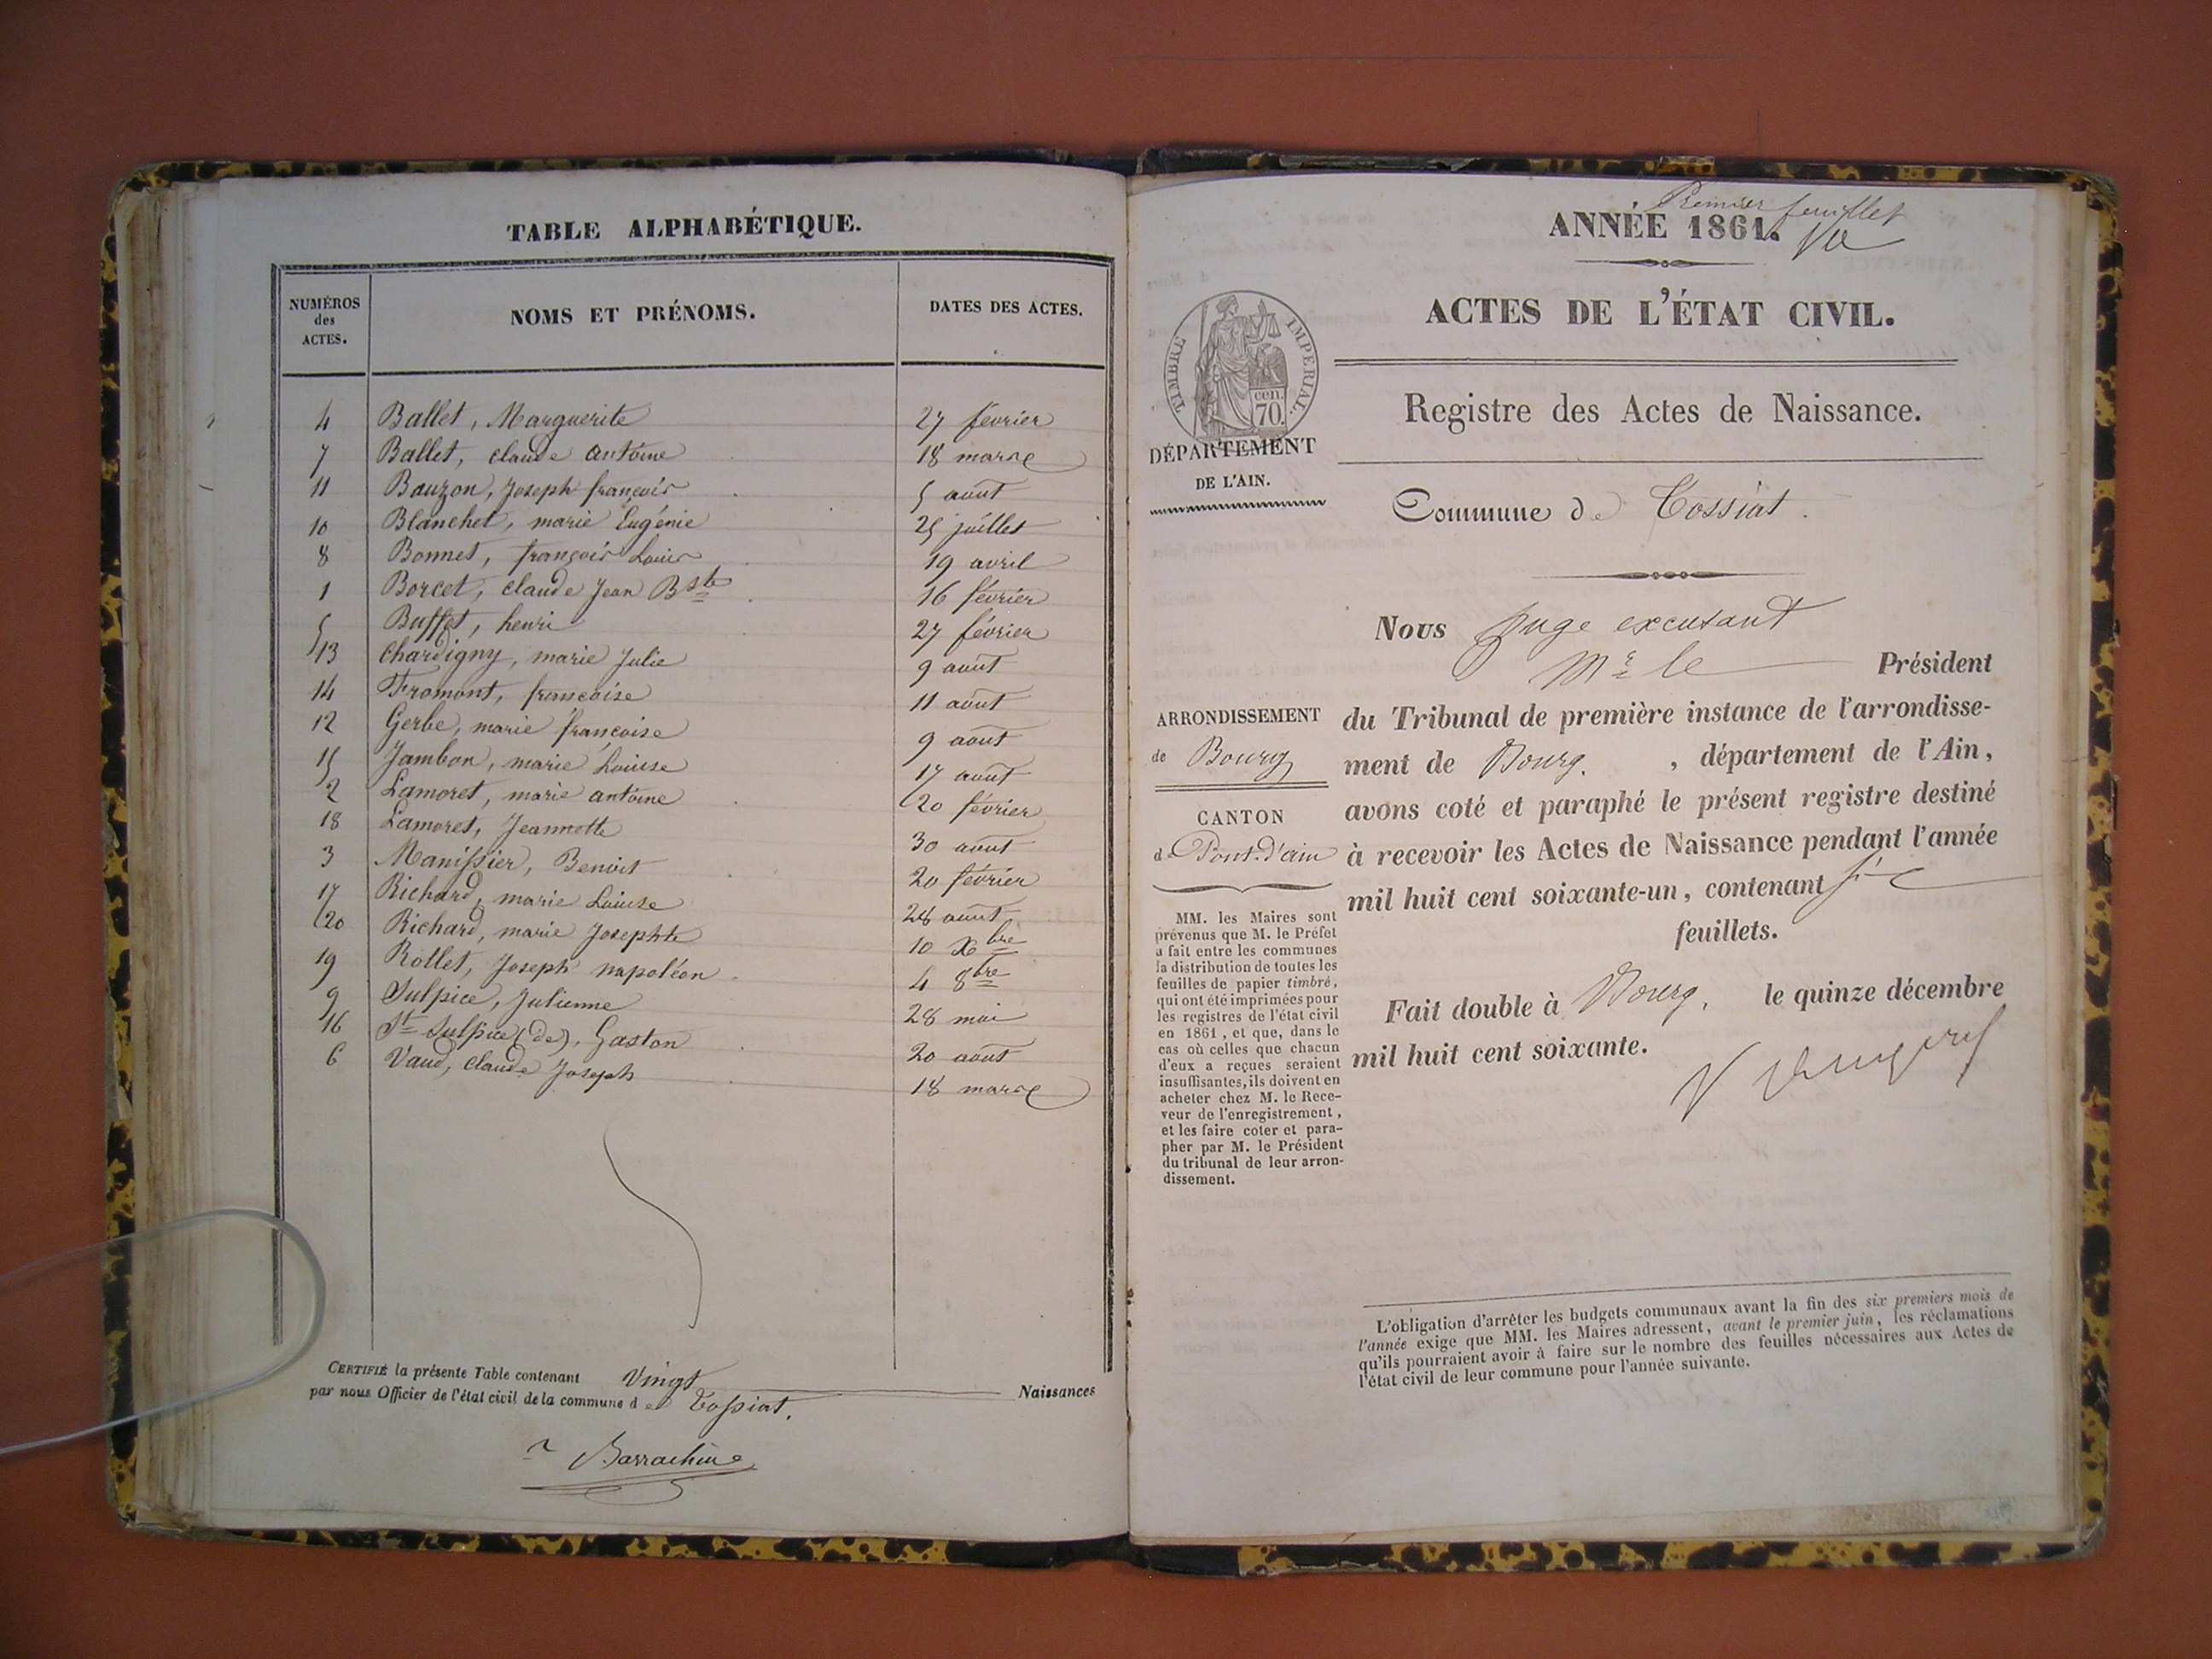 TABLE ALPHABÉTIQUE.
NUMÉROS des ACTES. NOMS ET PRÉNOMS. DATES DES ACTES.
4 Ballet, Marguerite 27 février
7 Ballet, claude antoine 18 mars
11 Bauzon, Joseph françois 5 août
10 Blanchet, marie Eugénie 25 juillet
8 Bonnet, françois Louis 19 avril
1 Borcet, claude Jean Bste 16 février
5 Buffet, henri 27 février
13 Chardigny, marie Julie 9 août
14 Fromont, françoise 11 août
12 Gerbe, marie françoise 9 août
15 Jambon, marie Louise 17 août
2 Lamoret, marie antoine 20 février
18 Lamoret, Jeannette 30 août
3 Manissier, Benoit 20 février
17 Richard, marie Louise 28 août
20 Richard, marie Josephte 10 Xbre
19 Rollet, Joseph napoléon 4 8bre
9 Sulpice, Julienne 28 mai
16 St Sulpice (de), Gaston 20 août
6 Vaud, claude Joseph 18 mars
CERTIFIÉ la présente Table contenant Vingt Naissances
par nous Officier de l'état civil de la commune de Tossiat.
Barrachin
Premier feuillet
ANNÉE 1861.
ACTES DE L'ÉTAT CIVIL.
TIMBRE IMPERIAL.
cen.
70.
Registre des Actes de Naissance.
DÉPARTEMENT
DE L'AIN.
Commune de Tossiat.
Nous Juge excusant
Mr le Président
du Tribunal de première instance de l'arrondisse-
ment de Bourg. , département de l'Ain,
avons coté et paraphé le présent registre destiné
à recevoir les Actes de Naissance pendant l'année
mil huit cent soixante-un, contenant
feuillets.
Fait double à Bourg, le quinze décembre
mil huit cent soixante.
ARRONDISSEMENT
de Bourg
CANTON
de Pont-d'ain
MM. les Maires sont
prévenus que M. le Préfet
a fait entre les communes
la distribution de toutes les
feuilles de papier timbré,
qui ont été imprimées pour
les registres de l'état civil
en 1861, et que, dans le
cas où celles que chacun
d'eux a reçues seraient
insuffisantes, ils doivent en
acheter chez M. le Rece-
veur de l'enregistrement,
et les faire coter et para-
pher par M. le Président
du tribunal de leur arron-
dissement.
L'obligation d'arrêter les budgets communaux avant la fin des six premiers mois de
l'année exige que MM. les Maires adressent, avant le premier juin, les réclamations
qu'ils pourraient avoir à faire sur le nombre des feuilles nécessaires aux Actes de
l'état civil de leur commune pour l'année suivante.